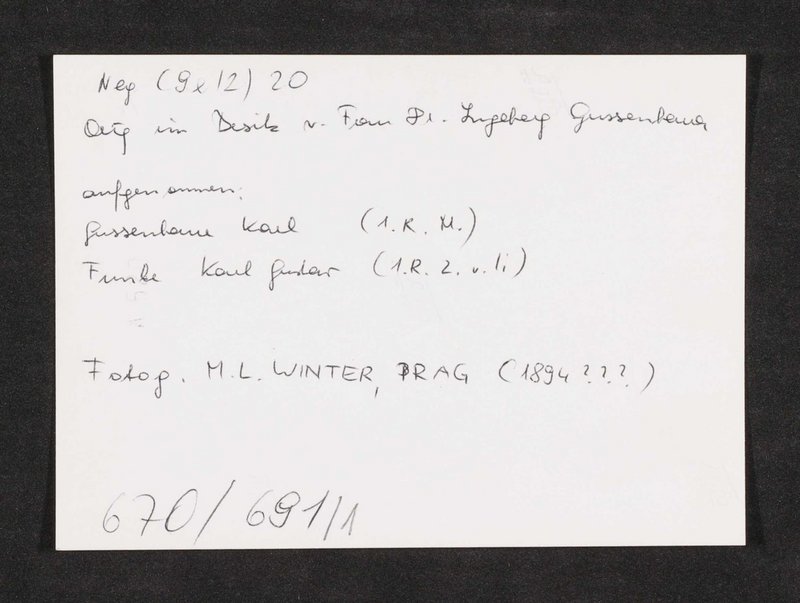 Neg (9x12) 20
Orig im Besitz v. Frau Dr. Ingeborg Gussenbauer
aufgenommen:
Gussenbauer Karl (1. R. M.)
Funke Karl Gustav (1. R. 2. v. li)
Fotog. M. L. WINTER, PRAG (1894???)
670/691/1